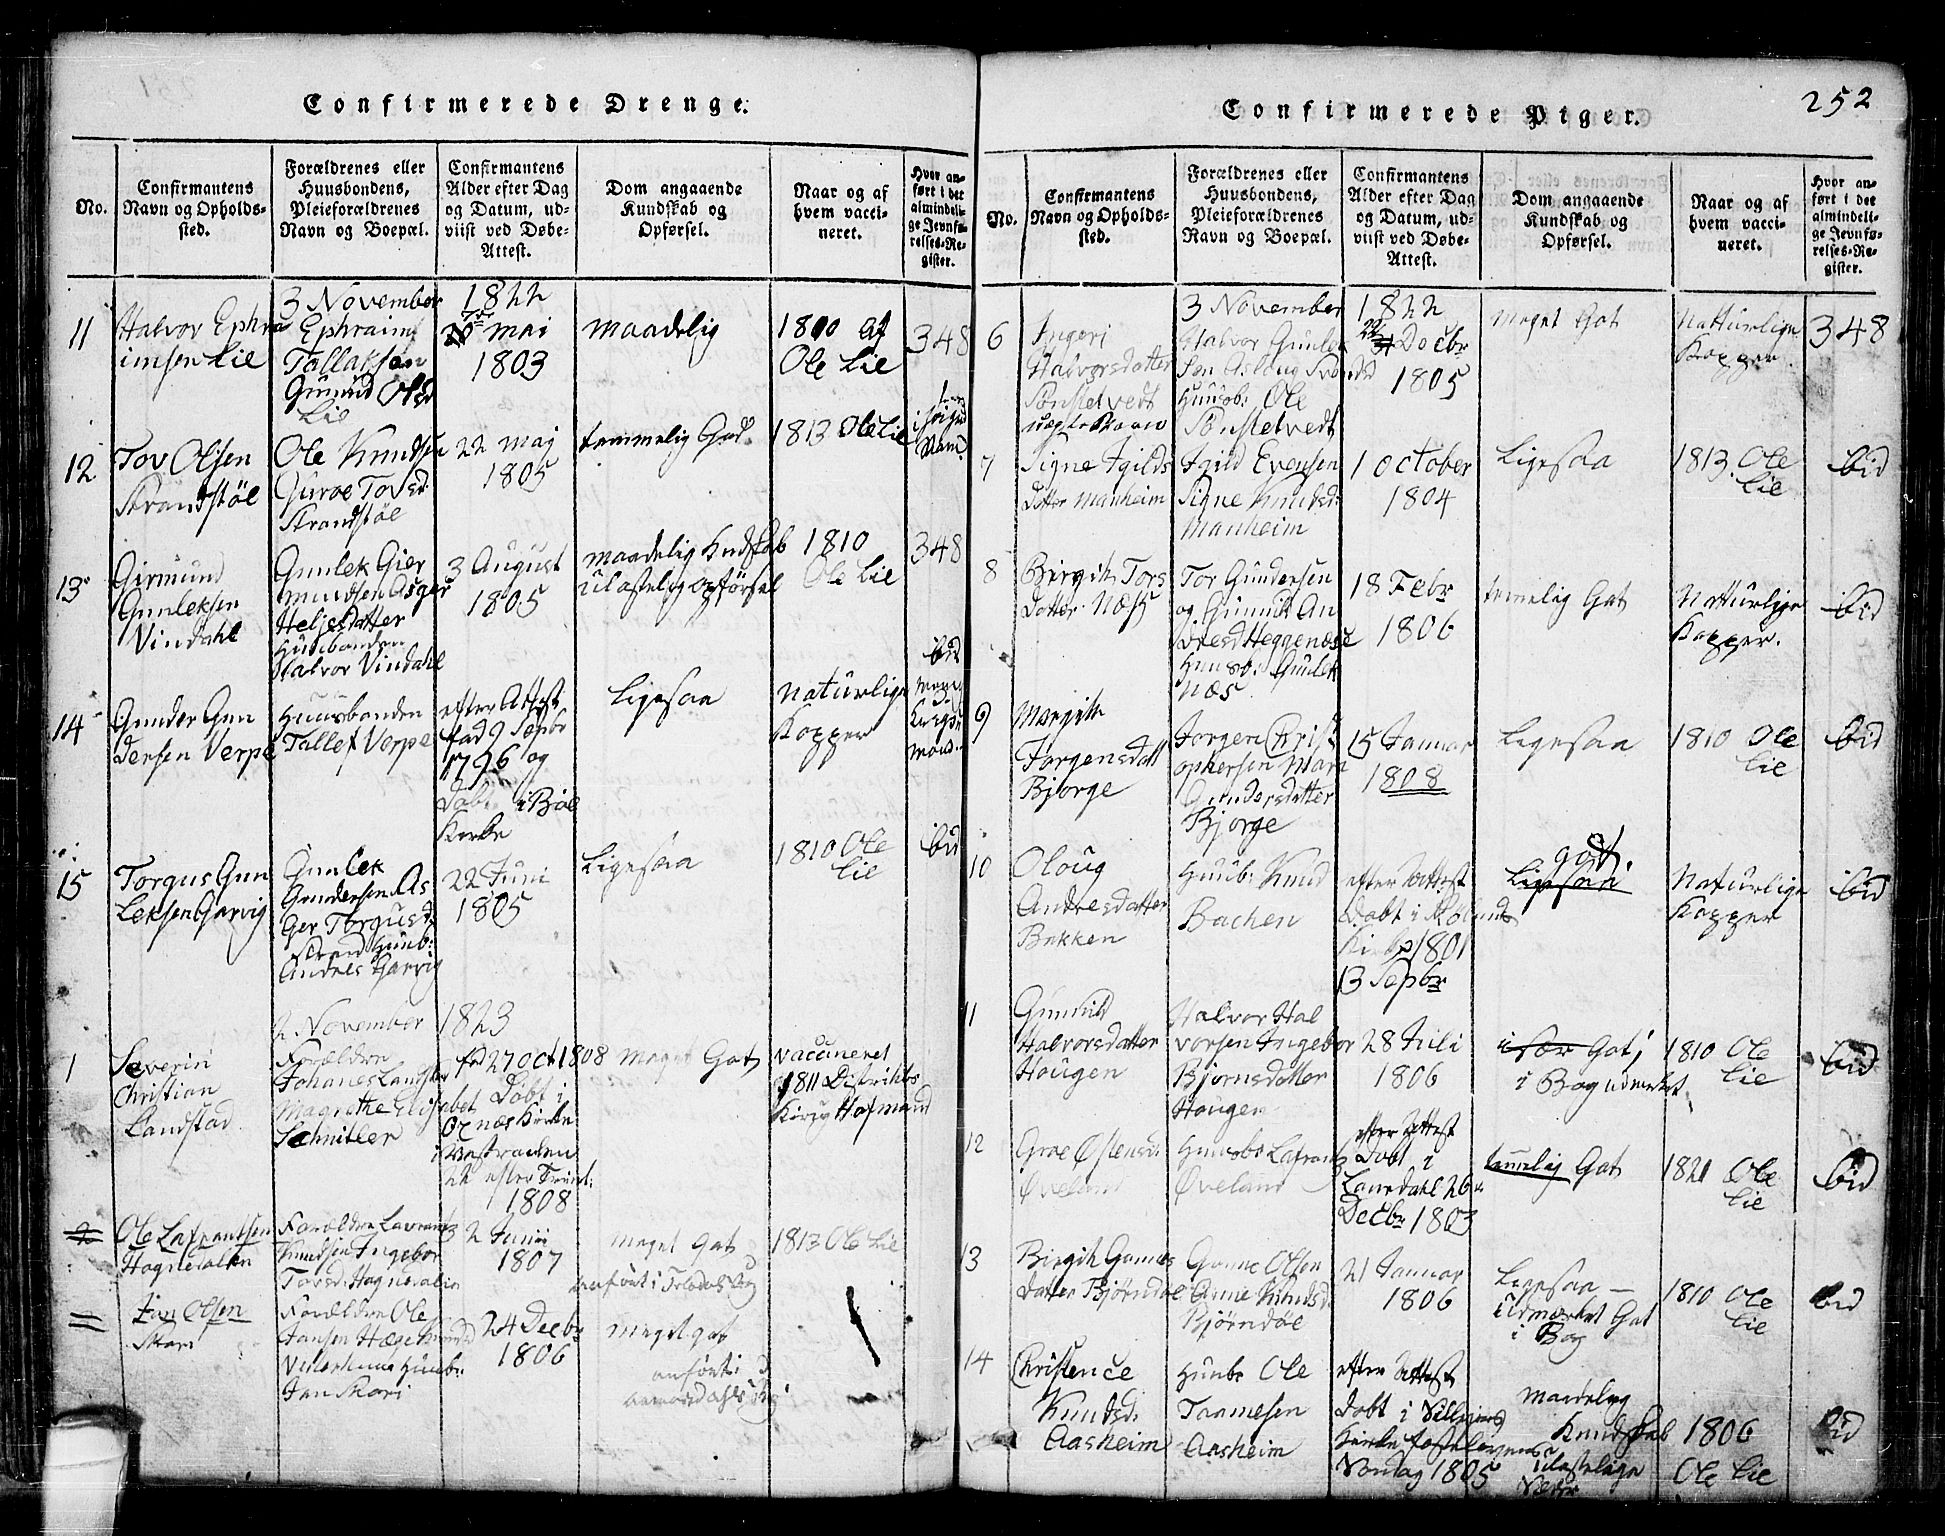 Confirmerede Drenge.
No.
Confirmantens
Navn og Opholds-
sted.
Forældrenes eller
Huusbondens,
Pleieforældrenes
Navn og Boepæl.
Confirmantens
Alder efter Dag
og Datum, ud-
viist ved Døbe-
Attest.
Dom angaaende
Kundskab og
Opførsel.
Naar og af
hvem vacci-
neret.
Hvor an-
ført i det
almindeli-
ge Jevnfø-
relses-Re-
gister.
3 November 1822
11
Halvor Ephra
imsen Lie
Ephraim
Tallaksen
Gunild Olsd
Lie
mai
1803
maadelig
1810 af
Ole Lie
348
12
Tov Olsen
Strandstøl
Ole Knudsen
Guroe Tovsd
Strandstøl
22 maj
1805
temmelig God
1813 Ole Lie
13
Girmund
Gunleksen
Vindahl
Gunlek Gier
mundsen Asger
Heljesdatter
Huusbonden
Halvor Vindahl
3 August
1805
maadelig Kndskab
ulastelig opførsel
1810
Ole Lie
348
14
Gunder Gun
dersen Verpe
Huusbonden
Tallef Verpe
efter Attest
fød 9 Sepbr
1796 og
Døbt i Bøe
Kirke
Ligesaa
Naturlige
Kopper
ibid
15
Torgus Gun
leksen Garvig
Gunlek
Gundersen As
Ger Torgusd
Strand Huusb:
Andres Garvig
22 Juni
1805
Ligesaa
1810 Ole
Lie
ibid
2 November 1823
1
Severin
Christian
Landstad
Forældre
Johanes Landstad
Magrethe Elisabet
Schnitler
fød 27 Oct 1808
Døbt i
Kirke
22 efter Trinit:
1808
meget Got
Vaccineret
1811 Distrikts
Kirurg Hofmand
2
Ole Lafrantsen
Hagnedalen
Forældre Lavrants
Knudsen Ingebor
Tovsd. Hagnedalen
2 Junii
1807
meget Got
anført i Bog
1813 Ole Lie
Jan Olsen
Skori
Forældre Ole
Jansen Hæge
Huusb:
Jan Skori
24 Decbr
1806
meget got
anført i
Bog
Confirmerede Piger.
252
No.
Confirmantens
Navn og Opholds-
sted.
Forældrenes eller
Huusbondens,
Pleieforældrenes
Navn og Boepæl.
Confirmantens
Alder efter Dag
og Datum, ud-
viist ved Døbe-
Attest.
Dom angaaende
Kundskab og
Opførsel.
Naar og af
hvem vacci-
neret.
Hvor an-
ført i det
almindeli-
ge Jevnfø-
relses-Re-
gister.
3 November 1822
6
Ingeri
Halvorsdatter
Sønstetvedt
Halvor Gunlek
Sen Aslaug
Huusb: Ole
Sønstetvedt
22 Decbr
1805
meget Got
Natturlige
Kopper
348
7
Signe Igilds
Datter Manheim
Igild Evensen
Signe Knudsd:
Manheim
1 October
1804
Ligesaa
1813. Ole
Lie
ibid
8
Birgith Tors
Datter Næss
Tor Gundersen
og Gunnild An
dresd Heggenæse
Huusb: Gunlek
Næs
18 Febr
1806
temelig Got
Natturlige
Kopper.
ibid
9
Margith
Jorgensdatt
Bjorge
Jorgen Christ
ophersen Mari
Gundersdatter
Bjorge
15 Januar
1808
Ligesaa
1810 Ole
Lie
ibid
10
Oloug
Andresdatter
Bakken
Huusb: Knud
Bachen
efter Attest
Døbt i Mølands
Kirke 1801
13 Sepbr
godt.
Ligesaa
Naturlige
Kopper
ibid
11
Gunild
Halvorsdatter
Hougen
Halvor Hal
vorsen Ingebor
Bjornsdatter
Hougen
28 Juli
1806
især Got j
i Bog udmerket
1810 Ole
Lie
ibid
12
Groe Østensd:
Øveland
Huusb: Lafrantz
Øveland
efter Attest
Døbt i
Laurdahl 26
Decbr 1803
temelig Got
1821 Ole
Lie
ibid
13
Birgith Gunnes
Datter Bjørndal
Gunne Olsen
Anne Knudsd.
Bjørndal
21 Januar
1806
Ligesaa —
udmerket Got
i Bog
1810 Ole
Lie
ibid
14
Christence
Knudsd:
Aasheim
Huusb: Ole
Tarmesen
Aasheim
efter Attest
Døbt i
Kirke Fastelavens
Søndag 1805
maadelig
Kundskab
ulastelige
Sæder
1806
Ole Lie
ibid